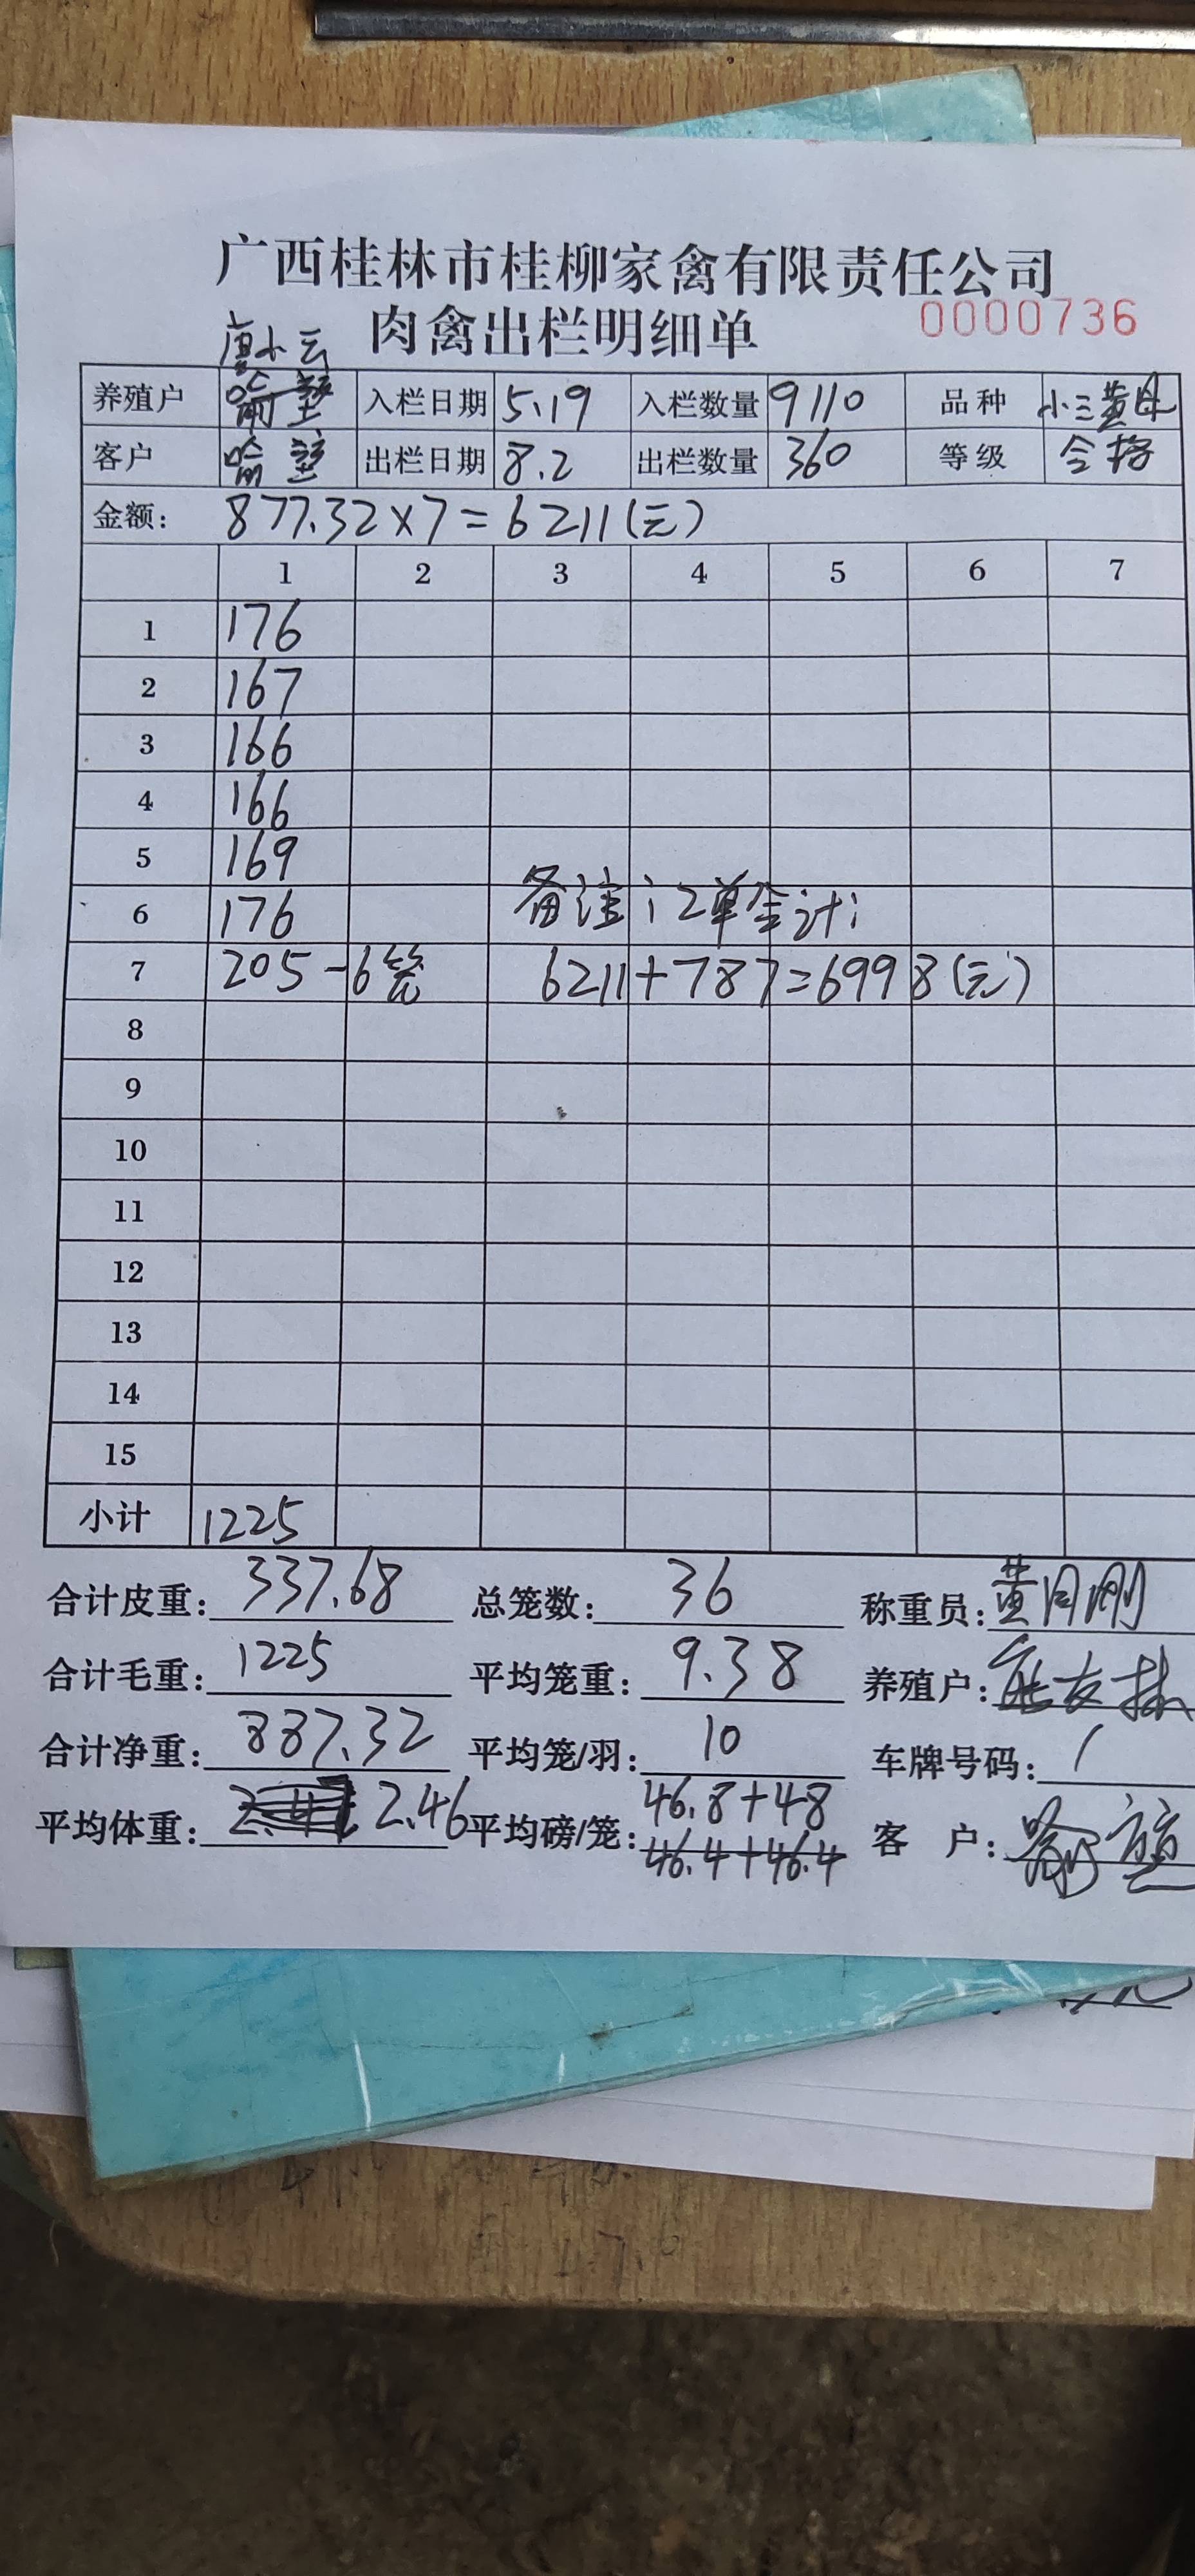 广西桂林市桂柳家禽有限责任公司
肉禽出栏明细单 0000736
唐小云
养殖户 入栏日期 5.19 入栏数量 9110 品种 小三黄母
客户 喻 出栏日期 8.2 出栏数量 360 等级 合格
金额: 877.32×7=6211(元)
1 2 3 4 5 6 7
1 176
2 167
3 166
4 166
5 169
6 176 备注:2单合计:
7 205-6笼 6211+787=6998(元)
8
9
10
11
12
13
14
15
小计 1225
合计皮重: 337.68 总笼数: 36 称重员: 黄月刚
合计毛重: 1225 平均笼重: 9.38 养殖户:
合计净重: 887.32 平均笼/羽: 10 车牌号码: /
平均体重: 2.46 平均磅/笼: 46.8+48 客 户:
46.4+46.4